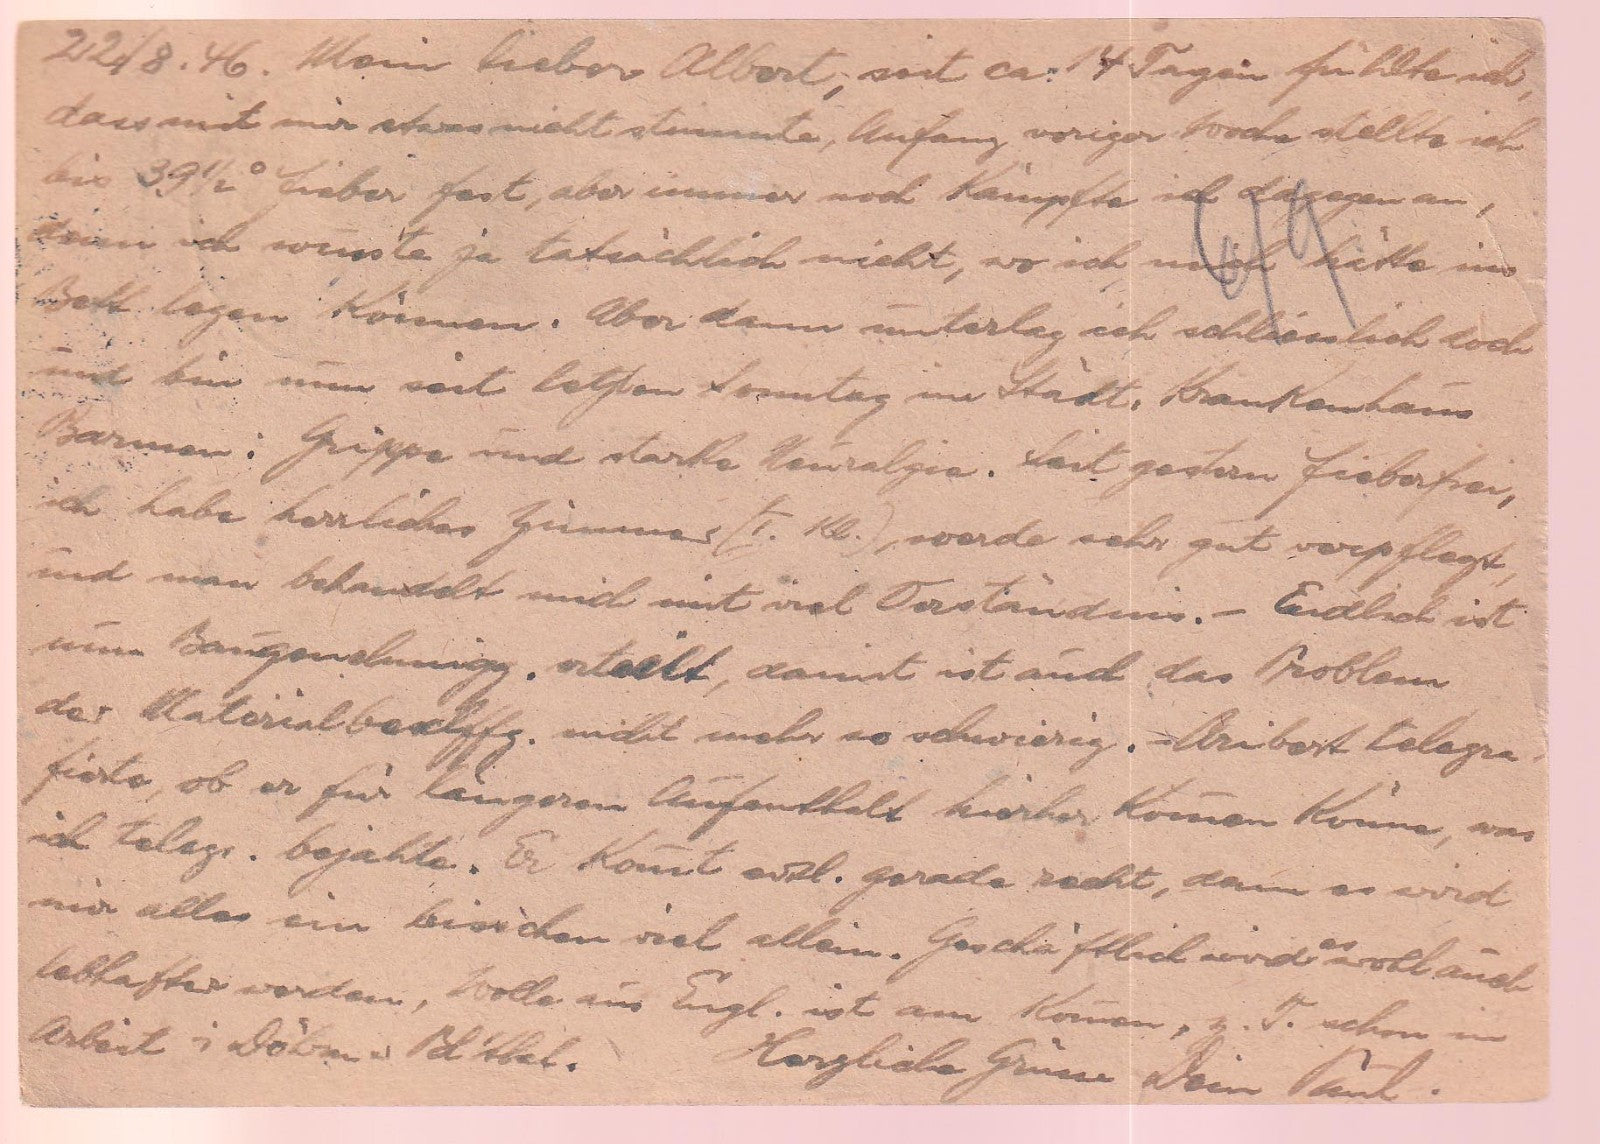 22/8.46. Mein lieber Albert, seit ca. 14 Tagen fühlte ich,
dass mit mir etwas nicht stimmte, Anfang voriger Woche stellte ich
bis 39 1/2° Fieber fest, aber immer noch kämpfte ich dagegen an,
denn ich wusste ja tatsächlich nicht, wo ich mich hätte ins
Bett legen können. Aber dann unterlag ich schliesslich doch
und bin nun seit letzten Sonntag im Städt. Krankenhaus
Barmen: Grippe und starke Neuralgie. Seit gestern fieberfrei,
ich habe herrliches Zimmer (I. Kl.), werde sehr gut verpflegt,
und man behandelt mich mit viel Verständnis. – Endlich ist
nun Baugenehmigg. erteilt, damit ist auch das Problem
der Materialbeschffg. nicht mehr so schwierig. – Aribert telegra-
fierte, ob er für längeren Aufenthalt hierher kom̄en könne, was
ich telegr. bejahte. Er kom̄t evtl. gerade recht, denn es wird
mir alles ein bisschen viel allein. Geschäftlich wird es wohl auch
lebhafter werden, Wolle aus Engl. ist am Kom̄en, z. T. schon in
Arbeit i. Herzliche Grüsse Dein Paul.
6/9